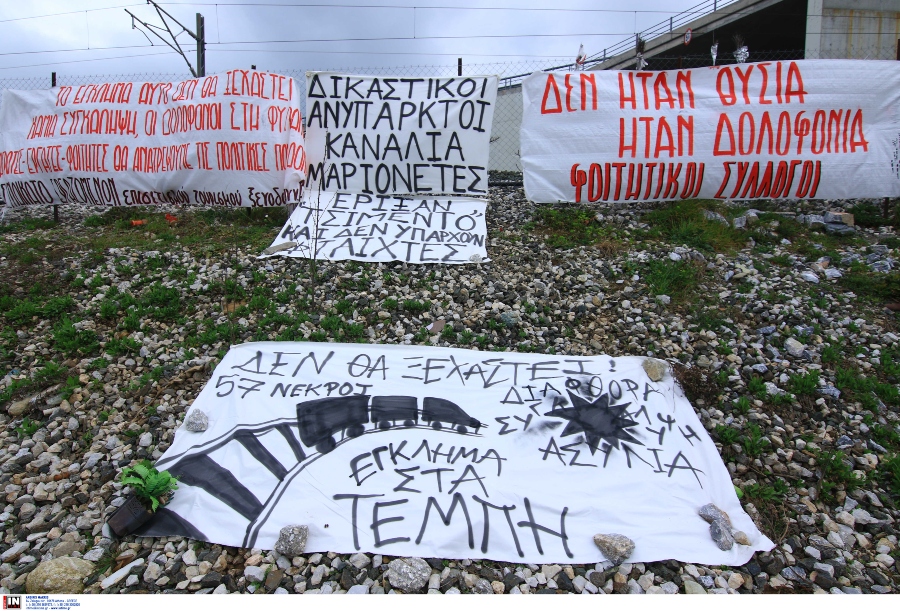 ΤΟ ΕΓΚΛΗΜΑ ΑΥΤΟ ΔΕΝ ΘΑ ΞΕΧΑΣΤΕΙ
ΚΑΜΙΑ ΣΥΓΚΑΛΗΨΗ, ΟΙ ΔΟΛΟΦΟΝΟΙ ΣΤΗ
ΦΟΙΤΗΤΕΣ ΘΑ ΑΝΑΤΡΕΨΟΥΜΕ ΤΙΣ ΠΟΛΙΤΙΚΕΣ
ΔΙΚΑΣΤΙΚΟΙ
ΑΝΥΠΑΡΚΤΟΙ
ΚΑΝΑΛΙΑ
ΜΑΡΙΟΝΕΤΕΣ
ΕΡΙΞΑΝ
ΤΣΙΜΕΝΤΟ
ΚΑΙ ΔΕΝ ΥΠΑΡΧΟΥΝ
ΔΕΝ ΗΤΑΝ ΘΥΣΙΑ
ΗΤΑΝ ΔΟΛΟΦΟΝΙΑ
ΦΟΙΤΗΤΙΚΟΙ ΣΥΛΛΟΓΟΙ
ΔΕΝ ΘΑ ΞΕΧΑΣΤΕΙ!
57 ΝΕΚΡΟΙ
ΔΙΑΦΘΟΡΑ
ΑΣΥΛΙΑ
ΕΓΚΛΗΜΑ
ΣΤΑ
ΤΕΜΠΗ
IN